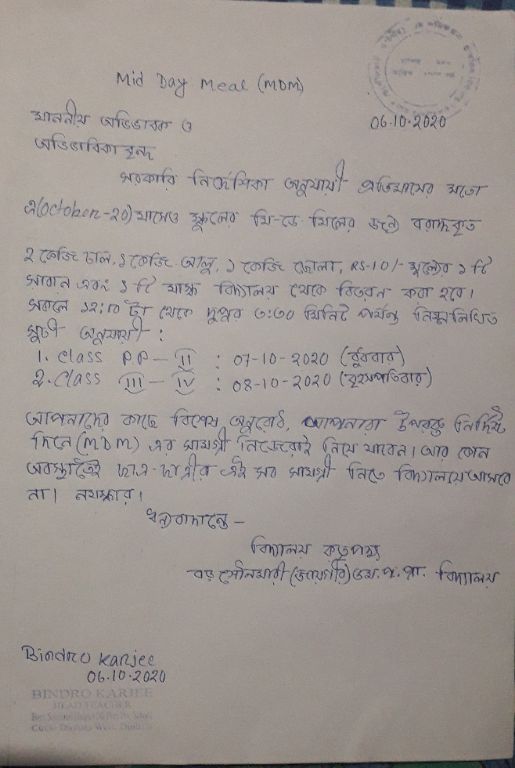 Mid Day Meal (MDM)
06.10.2020
মাননীয় অভিভাবক ও
অভিভাবিকা বৃন্দ
সরকারি নির্দেশিকা অনুযায়ী প্রতিমাসের মতো
(October-20) মাসেও স্কুলের মি-ডে মিলের জন্য বরাদ্দকৃত
২ কেজি চাল, ১ কেজি আলু, ১ কেজি ছোলা, RS-10/- মূল্যের ১ টি
সাবান এবং ১ টি মাস্ক বিদ্যালয় থেকে বিতরন করা হবে।
সকাল ১১:১০ টা থেকে দুপুর ৩:৩০ মিনিট পর্যন্ত নিম্নলিখিত
সূচী অনুযায়ী :
1. Class PP - II : 07-10-2020 (বুধবার)
2. Class III - IV : 08-10-2020 (বৃহস্পতিবার)
আপনাদের কাছে বিশেষ অনুরোধ, আপনারা উপরুক্ত নির্দিষ্ট
দিনে (MDM) এর সামগ্রী নিজেরাই নিয়ে যাবেন। আর কোন
অবস্থাতেই ছাত্র-ছাত্রীর এই সব সামগ্রী নিতে বিদ্যালয়ে আসবে
না। নমস্কার।
ধন্যবাদান্তে -
বিদ্যালয় কতৃপক্ষ
বড় শৌলমারী এস.প.প্রা. বিদ্যালয়
Bindro Karjee
06.10.2020
BINDRO KARJEE
HEAD TEACHER